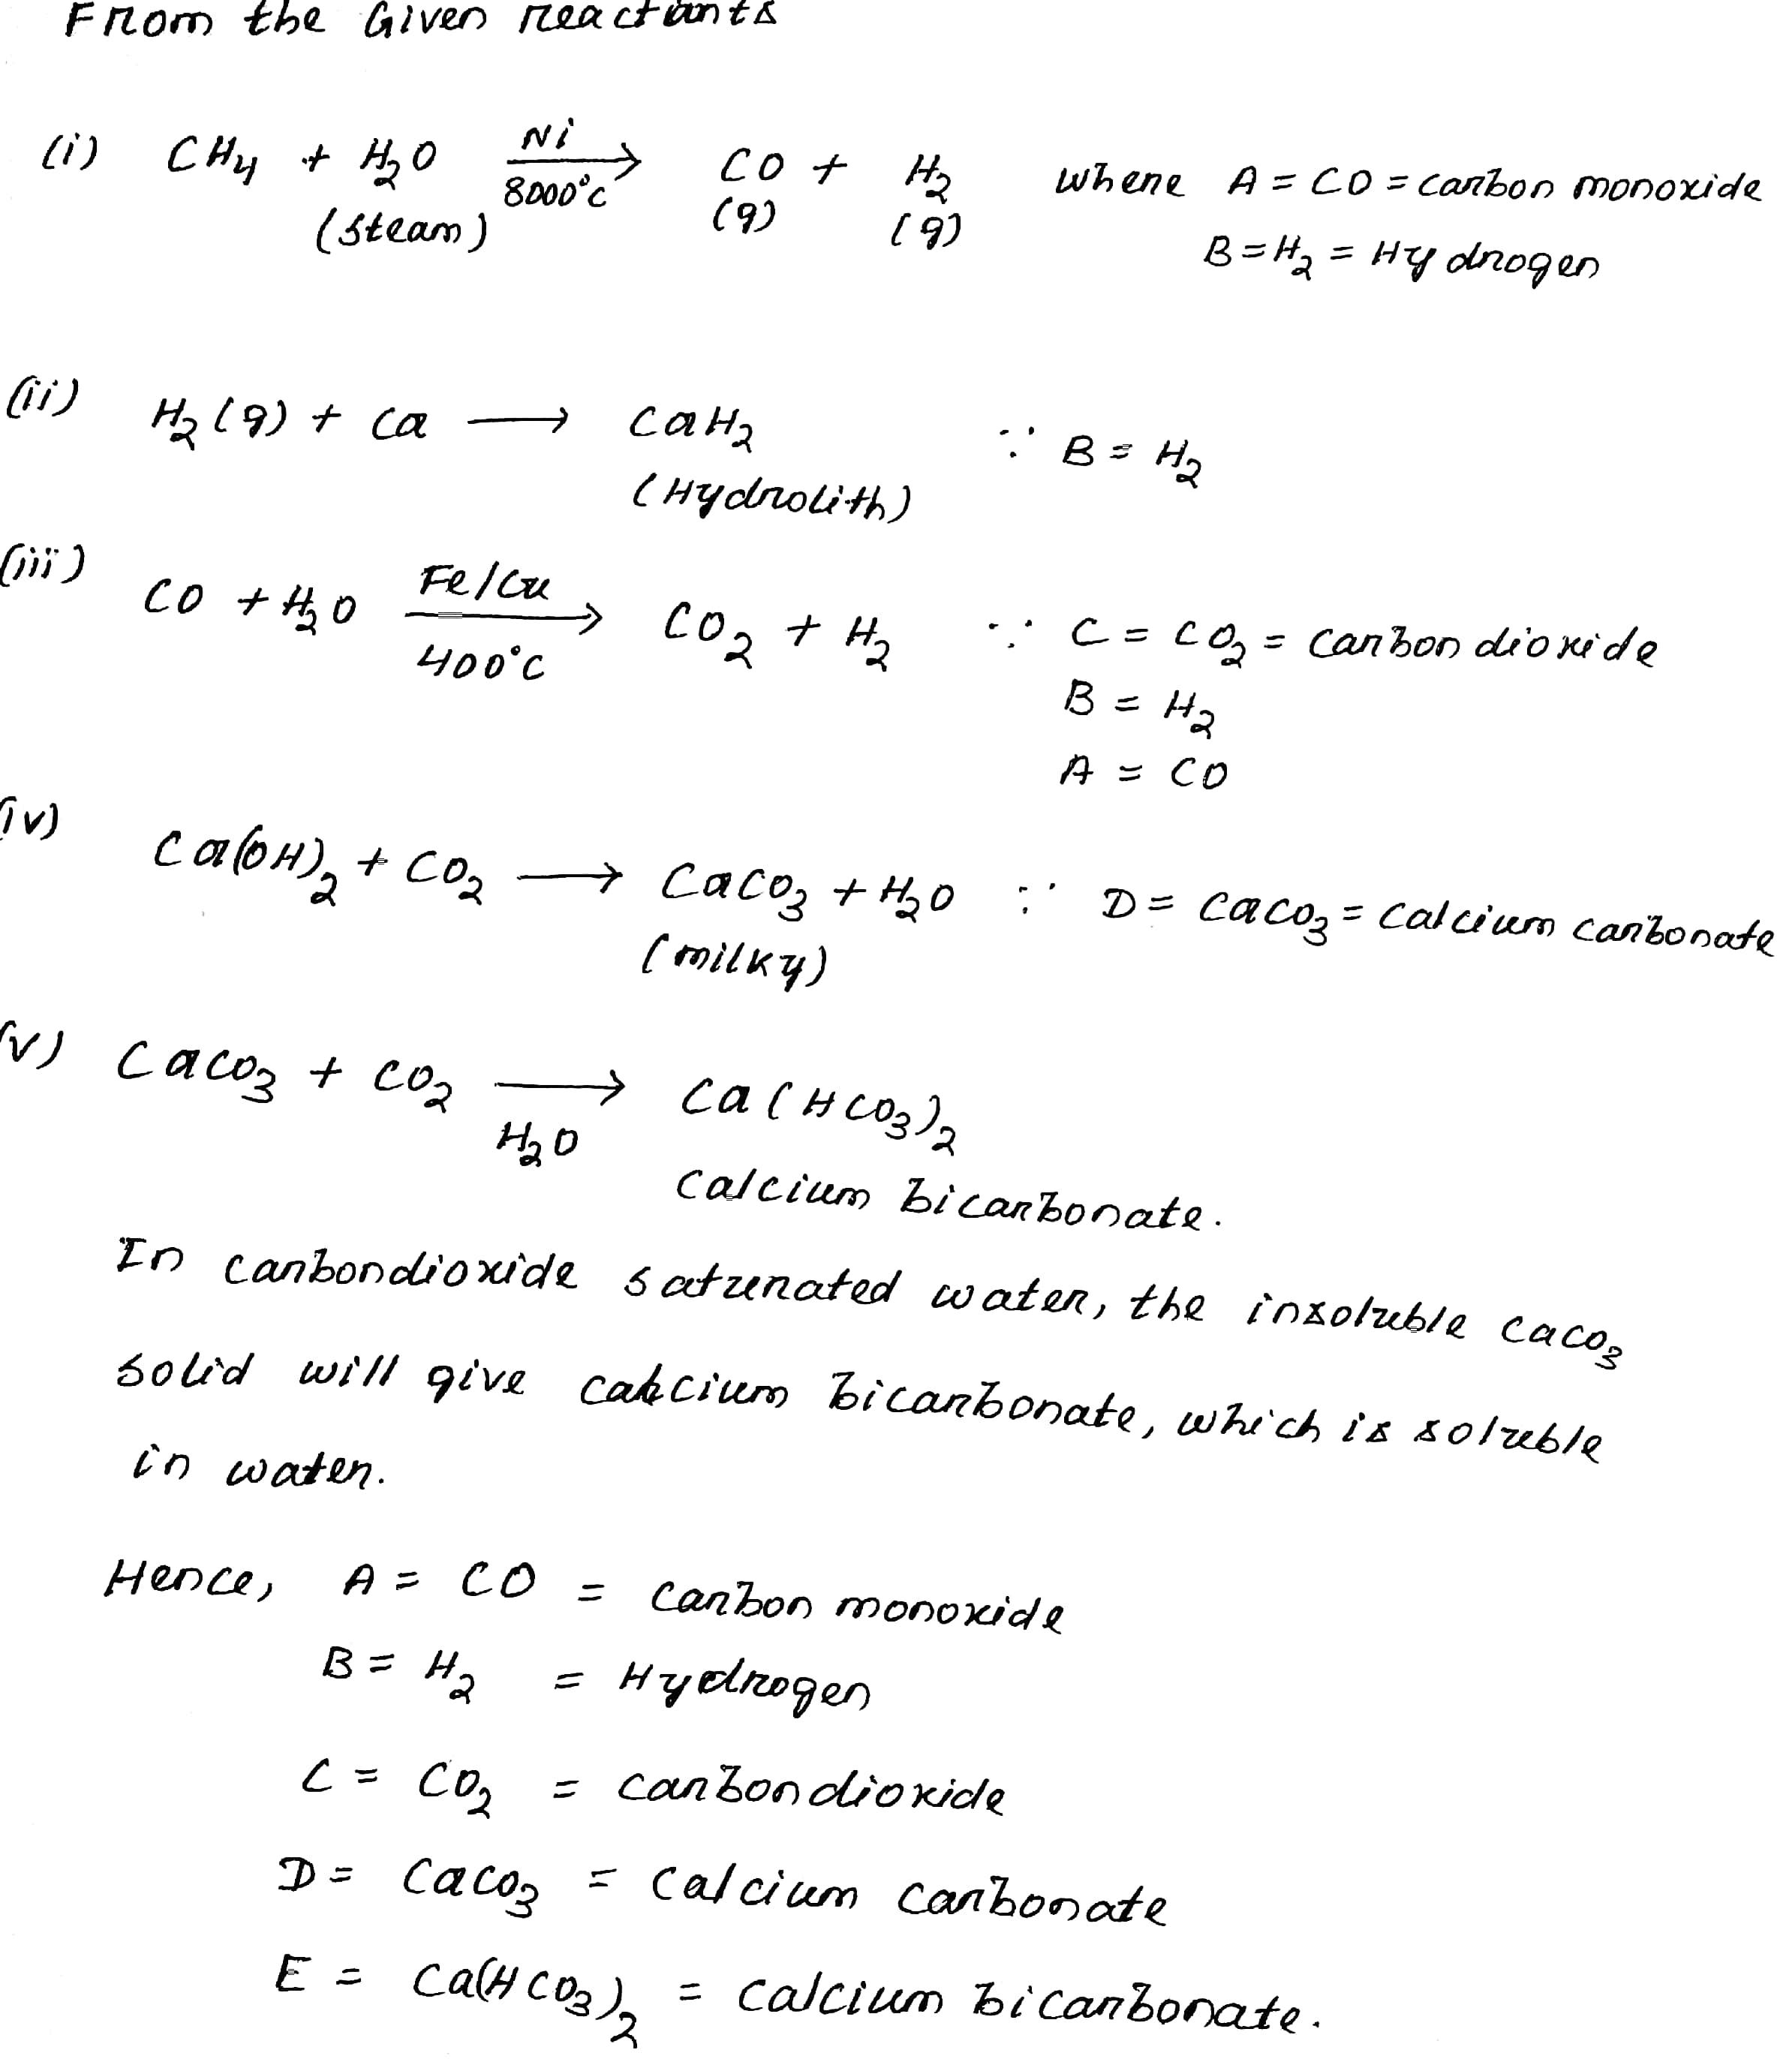 From the Given reactants
(i) CH4 + H2O Ni → 8000°C CO + H2 where A = CO = carbon monoxide
(Steam) (g) (g) B = H2 = Hydrogen
(ii) H2(g) + Ca → CaH2 ∵ B = H2
(Hydrolith)
(iii) CO + H2O Fe/Cu → 400°C CO2 + H2 ∵ C = CO2 = carbon dioxide
B = H2
A = CO
(iv) Ca(OH)2 + CO2 → CaCO3 + H2O ∵ D = CaCO3 = Calcium carbonate
(milky)
(v) CaCO3 + CO2 → H2O Ca(HCO3)2
Calcium bicarbonate.
In carbondioxide saturated water, the insoluble CaCO3
solid will give calcium bicarbonate, which is soluble
in water.
Hence, A = CO = carbon monoxide
B = H2 = Hydrogen
C = CO2 = carbondioxide
D = CaCO3 = Calcium carbonate
E = Ca(HCO3)2 = Calcium bicarbonate.